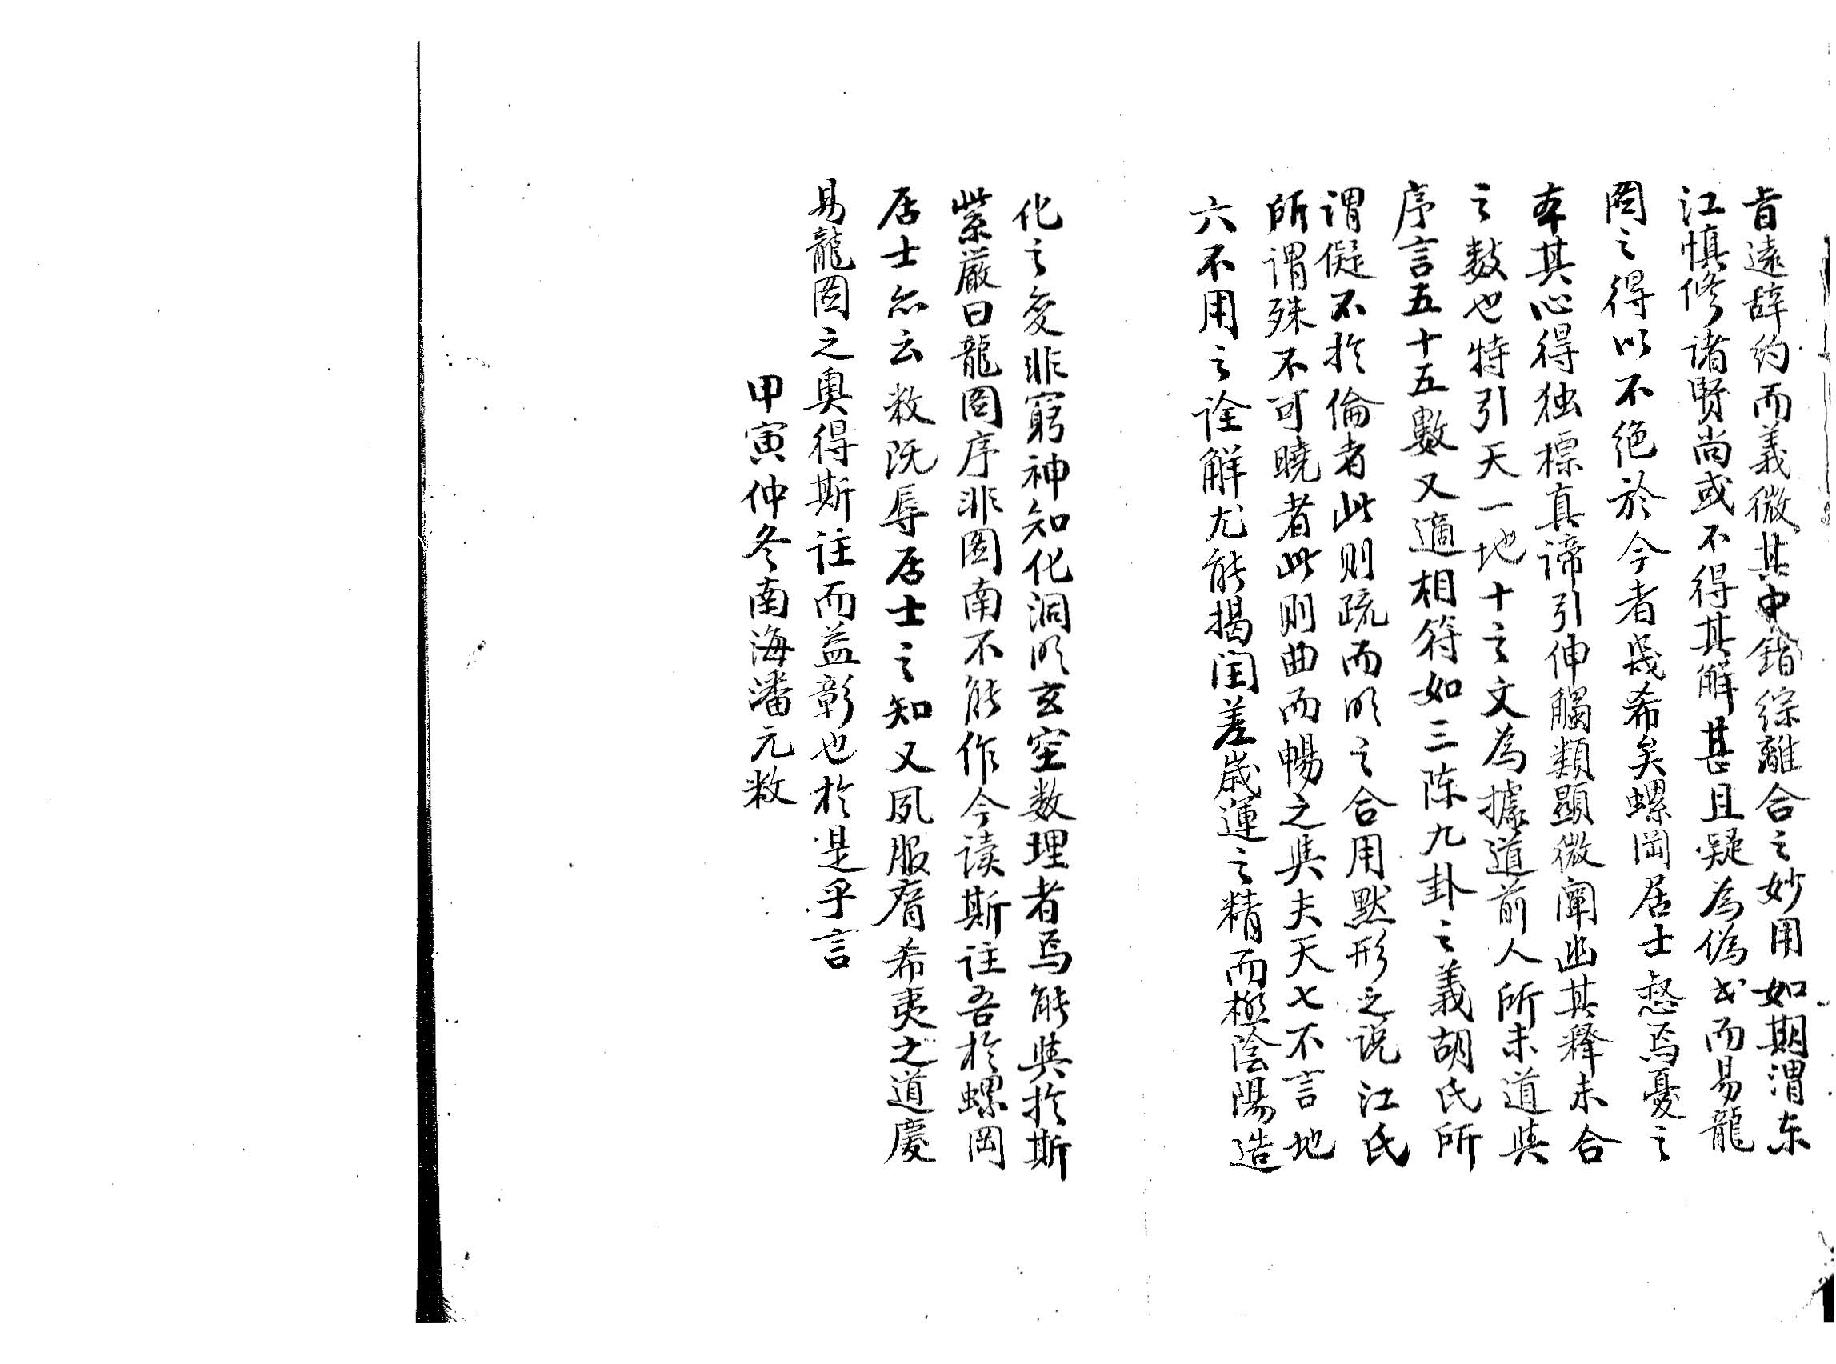 旨遠辞约而義微其中錯綜離合之妙用如期渭东
江慎修诸贤尚或不得其解甚且疑為偽书而易龍
圖之得以不绝於今者幾希矣螺岡居士惄焉憂之
本其心得独標真谛引伸觸類顯微闡幽其釋未合
之數也特引天一地十之文為據道前人所未道與
序言五十五數又適相符如三陈九卦之義胡氏所
谓儗不扵倫者此则疏而明之合用默形之说江氏
所谓殊不可曉者此则曲而暢之與夫天七不言地
六不用之诠解尤能揭闰差歲運之精而極陰陽造
化之变非窮神知化洞明玄空数理者焉能與扵斯
紫巖曰龍圖序非圖南不能作今读斯註吾扵螺岡
居士亦云敉既辱居士之知又夙服膺希夷之道慶
易龍圖之奥得斯註而益彰也扵是乎言
甲寅仲冬南海潘元敉